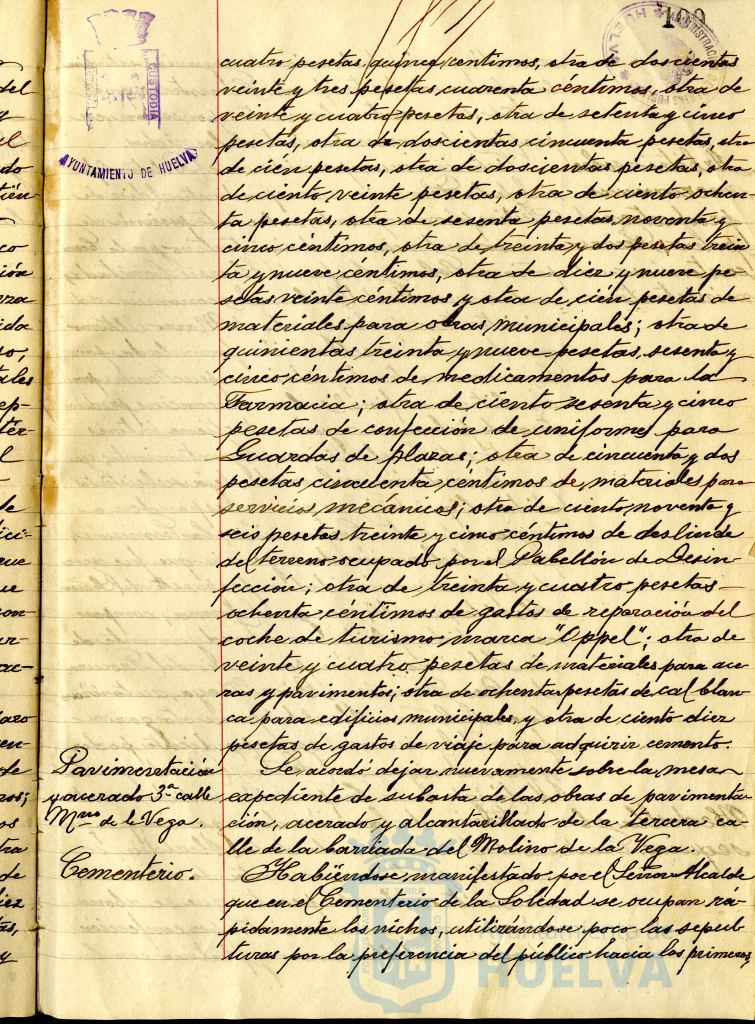 CUSTODIA
AYUNTAMIENTO DE HUELVA
cuatro pesetas quince centimos, otra de doscientas
veinte y tres pesetas cuarenta céntimos, otra de
veinte y cuatro pesetas, otra de setenta y cinco
pesetas, otra de doscientas cincuenta pesetas, otra
de cién pesetas, otra de doscientas pesetas, otra
de ciento veinte pesetas, otra de ciento ochen-
ta pesetas, otra de sesenta pesetas noventa y
cinco céntimos, otra de treinta y dos pesetas trein
ta y nueve céntimos, otra de diez y nueve pe-
setas veinte céntimos y otra de cién pesetas de
materiales para obras municipales; otra de
quinientas treinta y nueve pesetas, sesenta y
cinco céntimos de medicamentos para la
Farmacia; otra de ciento sesenta y cinco
pesetas de confección de uniformes para
Guardas de plazas; otra de cincuenta y dos
pesetas cincuenta céntimos de materiales para
servicios mecánicos; otra de ciento noventa y
seis pesetas treinte y cinco céntimos de deslinde
del terreno ocupado por el Pabellón de Desin-
fección; otra de treinta y cuatro pesetas
ochenta céntimos de gastos de reparación del
coche de turismo marca "Oppel"; otra de
veinte y cuatro pesetas de materiales para ace
ras y pavimentos; otra de ochenta pesetas de cal blan-
ca para edificios municipales, y otra de ciento diez
pesetas de gastos de viaje para adquirir cemento.
Pavimentación
y acerado 3ª calle
Mno de la Vega.
Se acordó dejar nuevamente sobre la mesa
expediente de subasta de las obras de pavimenta-
ción, acerado y alcantarillado de la tercera ca-
lle de la barriada del Molino de la Vega.
Cementerio.
Habiéndose manifestado por el Señor Alcalde
que en el Cementerio de la Soledad se ocupan rá-
pidamente los nichos, utilizándose poco las sepul-
turas por la preferencia del público hacia los primeros,
HUELVA